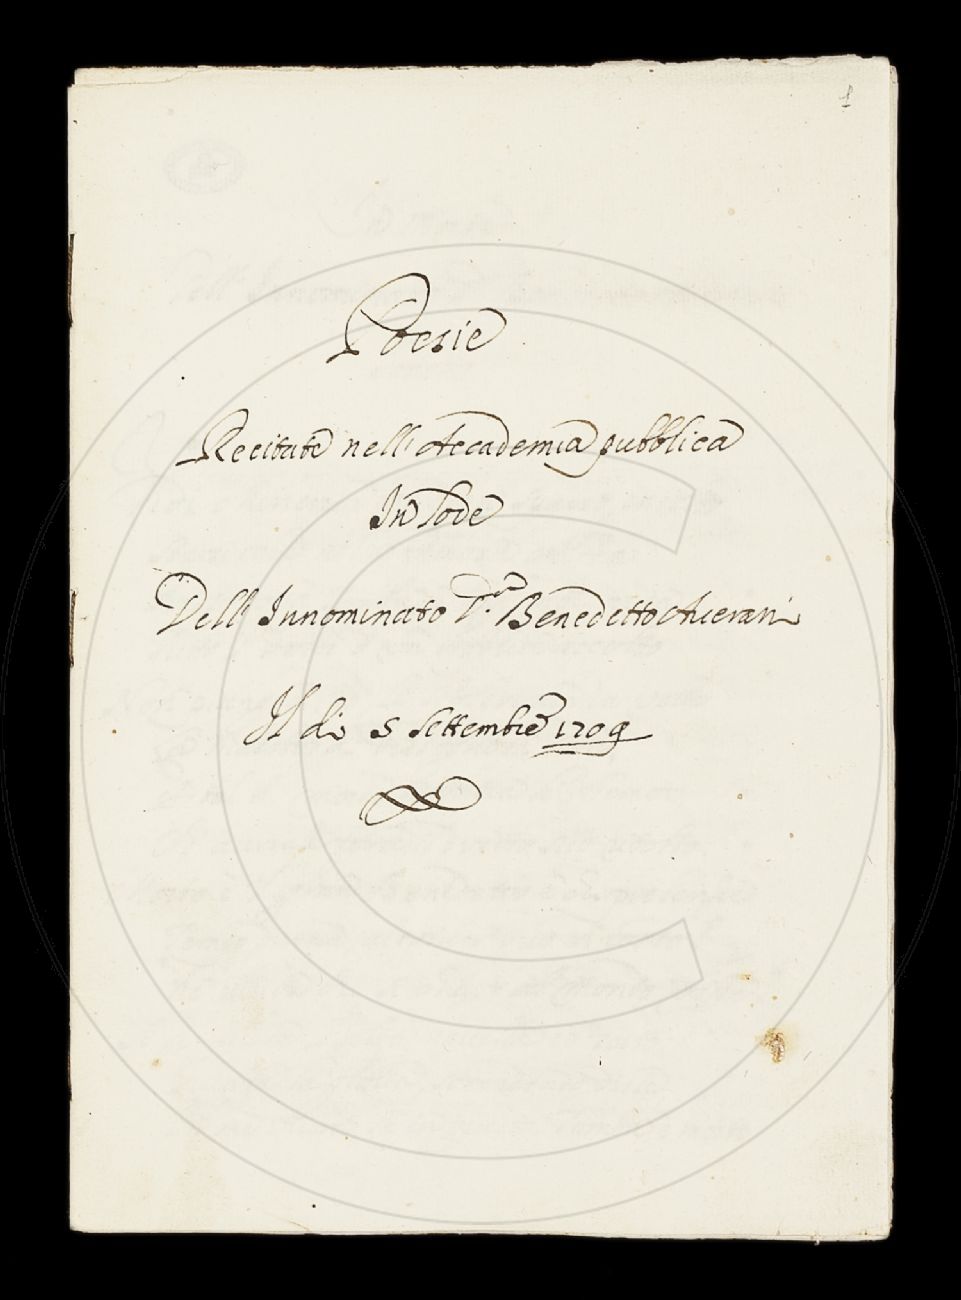 1
Poesie
Recitate nell' Accademia pubblica
In lode
Dell' Innominato D.r Benedetto Averani
Il di 5 Settembre 1709